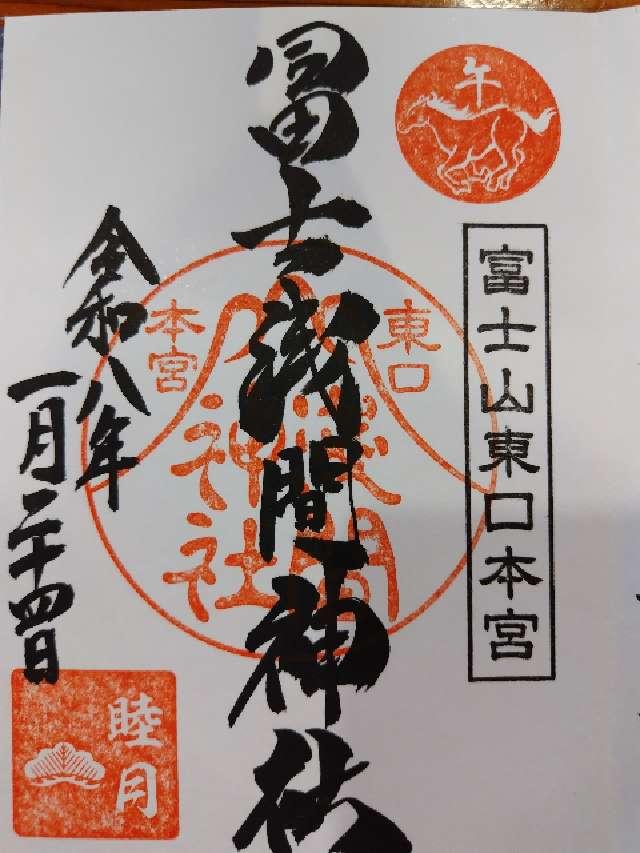 午
富士山東口本宮
冨士浅間神社
東口
本宮
浅間
神社
令和八年
一月二十四日
睦月